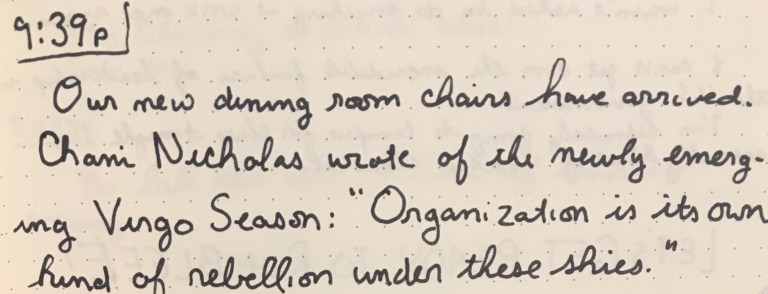 9:39p
Our new dining room chairs have arrived.
Chani Nicholas wrote of the newly emerg-
ing Virgo Season: "Organization is its own
kind of rebellion under these skies."